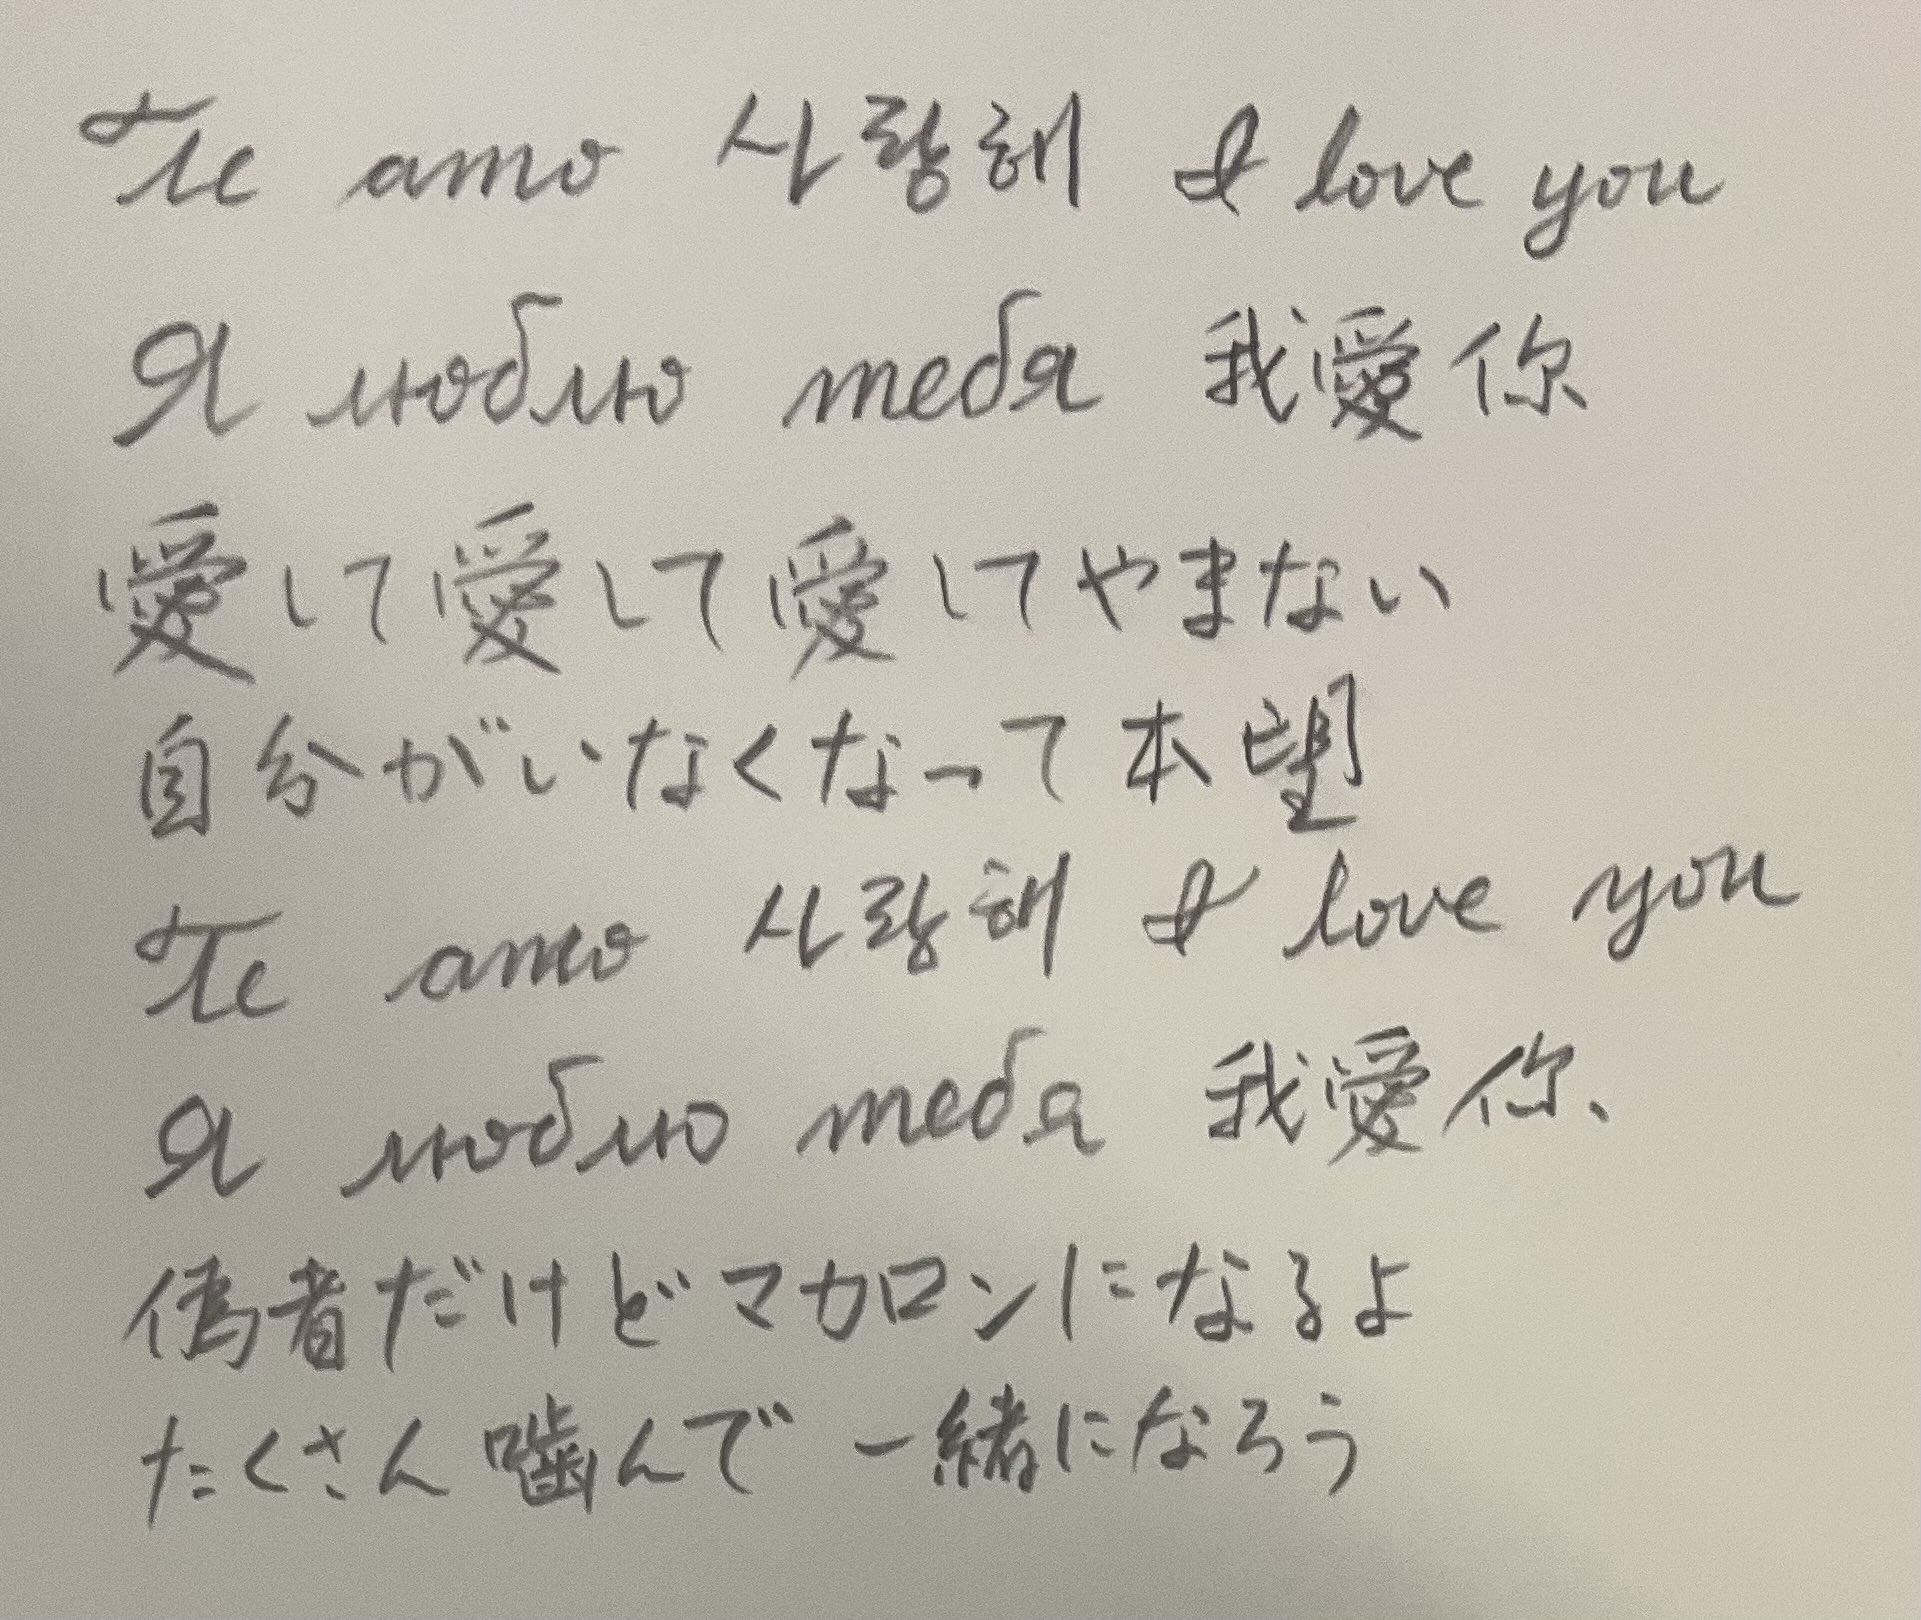 Te amo 사랑해 I love you
Я люблю тебя 我愛你
愛して愛して愛してやまない
自分がいなくなって本望
Te amo 사랑해 I love you
Я люблю тебя 我愛你
偽者だけどマカロンになるよ
たくさん噛んで一緒になろう